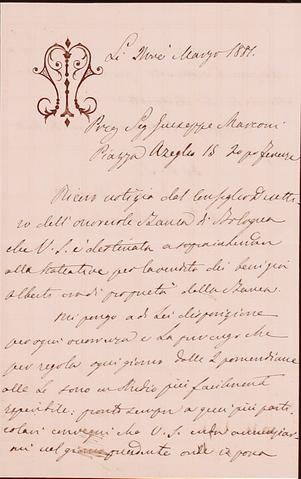 Marzo 1881.
Preg Sig Giuseppe Marconi
Piazza Azeglio 15 Firenze
Ricevo notizia dal Consiglio Diretti
vo dell'onorevole Banca di Bologna
che V. S. è destinata a sopraintendere
alle trattative per la vendita dei
di proprietà della Banca.
Mi pongo a di Lei disposizione
per ogni e La prevengo che
per regola ogni giorno dalle 2 pomeridiane
alle sono in Studio più facilmente
reperibile: pronto sempre a quei più parti
colari convegni che V. S.
mi nel giorno precedente onde io possa